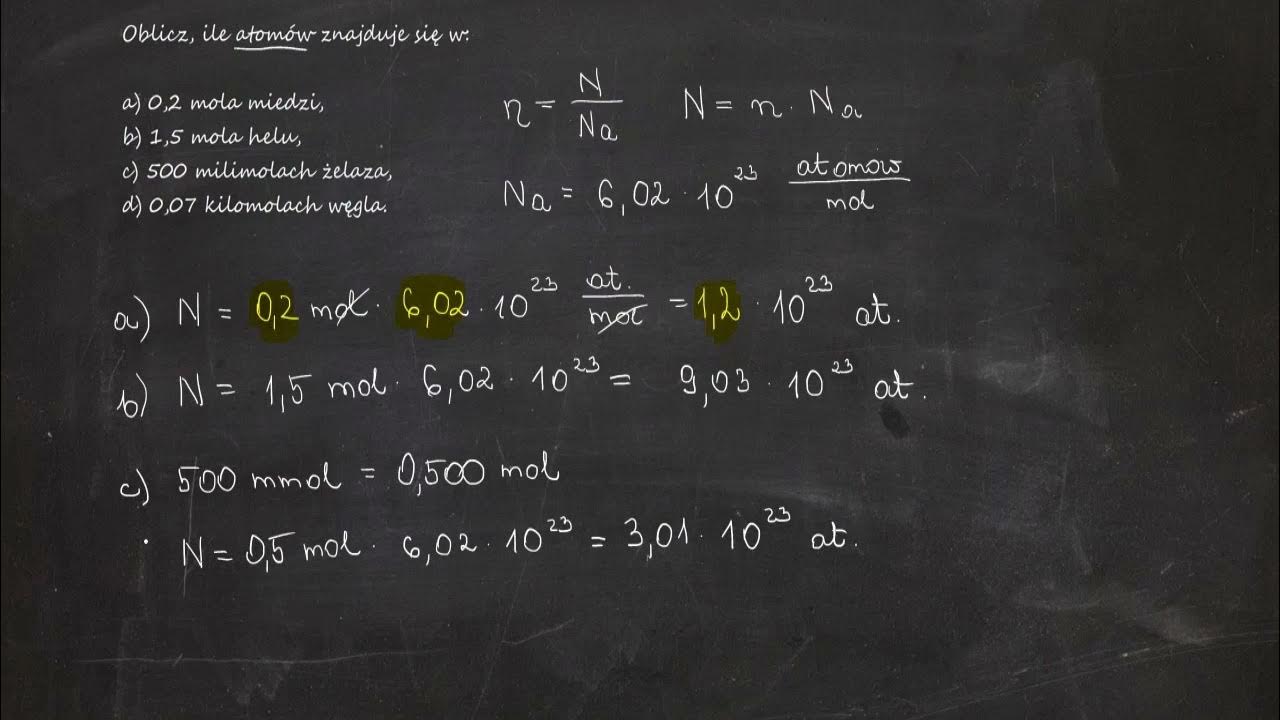 Oblicz, ile atomów znajduje się w:
a) 0,2 mola miedzi,
b) 1,5 mola helu,
c) 500 milimolach żelaza,
d) 0,07 kilomolach węgla.
n = N/Na N = n · Na
Na = 6,02 · 10²³ atomow/mol
a) N = 0,2 mol · 6,02 · 10²³ at./mol = 1,2 · 10²³ at.
b) N = 1,5 mol · 6,02 · 10²³ = 9,03 · 10²³ at.
c) 500 mmol = 0,500 mol
N = 0,5 mol · 6,02 · 10²³ = 3,01 · 10²³ at.